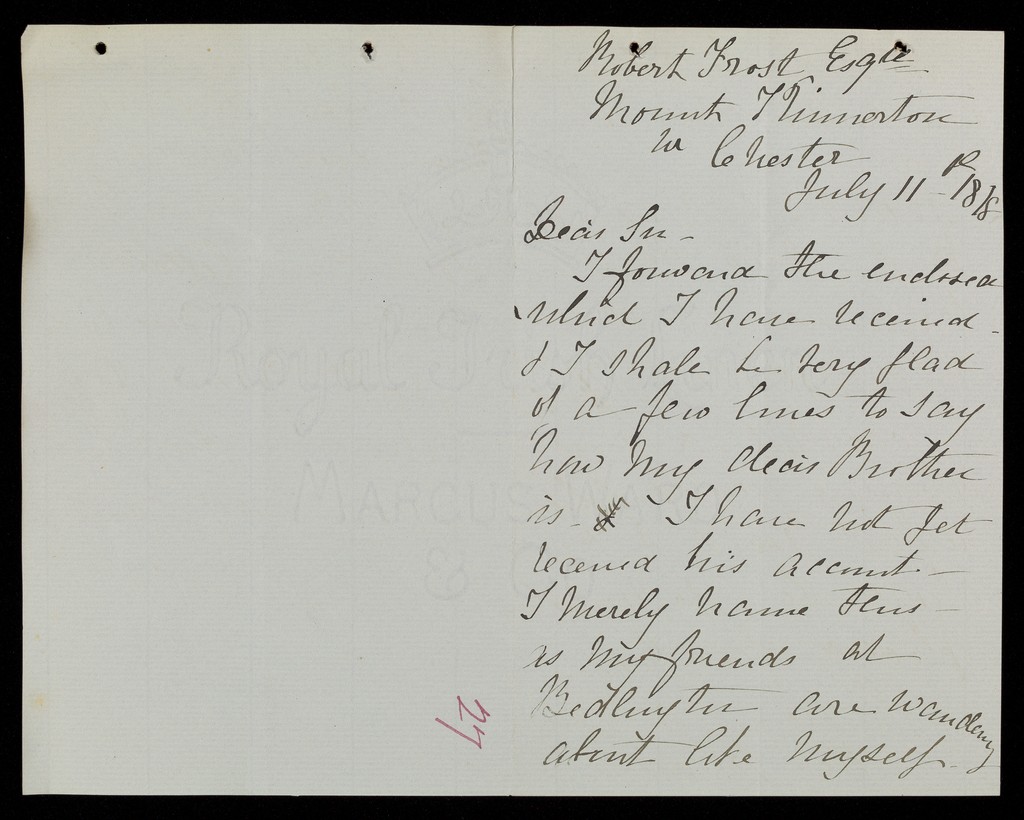 Robert Frost Esqre
Mount
nr Chester
July 11th 1878
Dear Sir -
I forward the enclosed
which I have received -
& I shall be very glad
of a few lines to say
how my dear Brother
is - I have not yet
received his account -
I merely name this -
as my friends at
Bedlington are wandering
about like myself -
Royal Irish Linen
MARCUS WARD
& Co
27